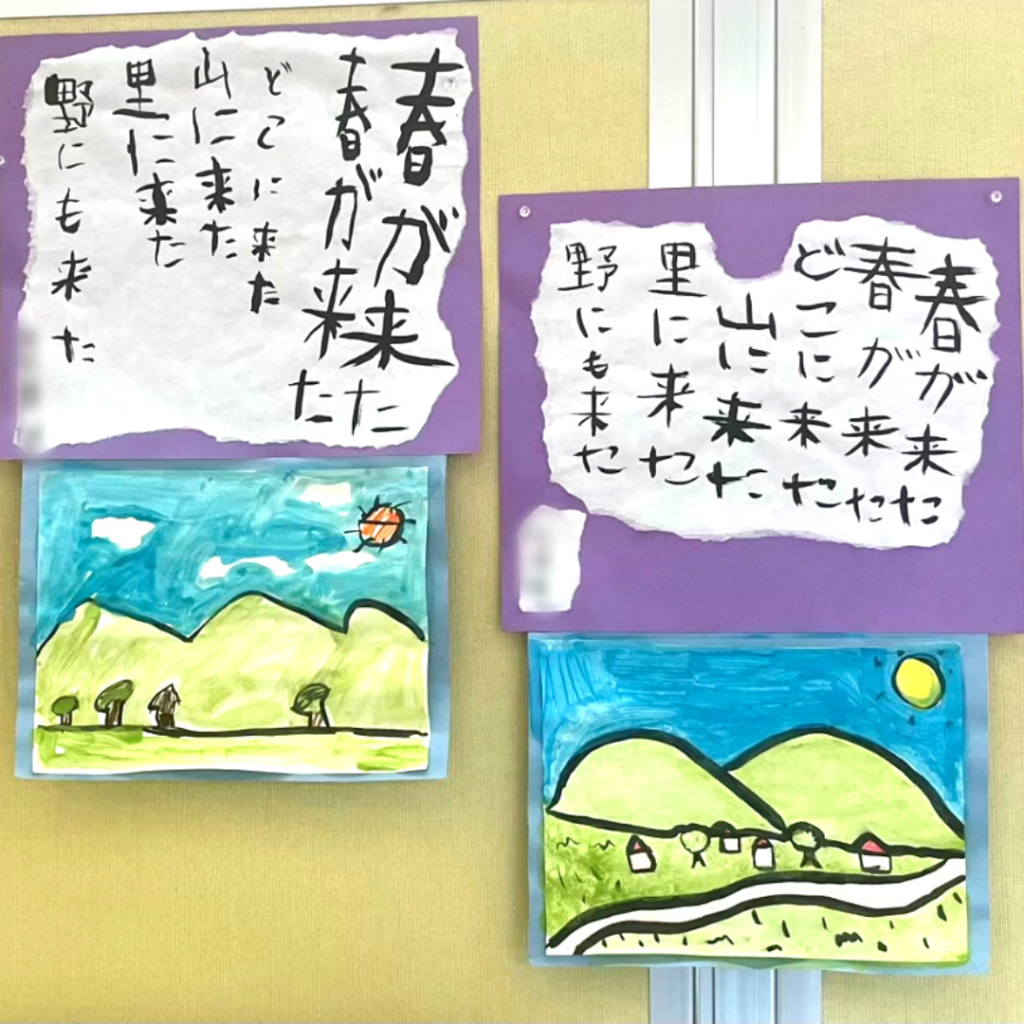 春が来た
春が来た
どこに来た
山に来た
里に来た
野にも来た
春が来た
春が来た
どこに来た
山に来た
里に来た
野にも来た